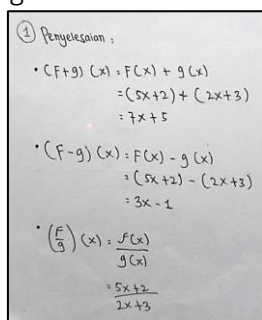 ① Penyelesaian :
• (F+g) (x) = F(x) + g(x)
= (5x+2) + (2x+3)
= 7x+5
• (F-g) (x) = F(x) - g(x)
= (5x+2) - (2x+3)
= 3x - 1
• (F/g) (x) = F(x)/g(x)
= 5x+2/2x+3